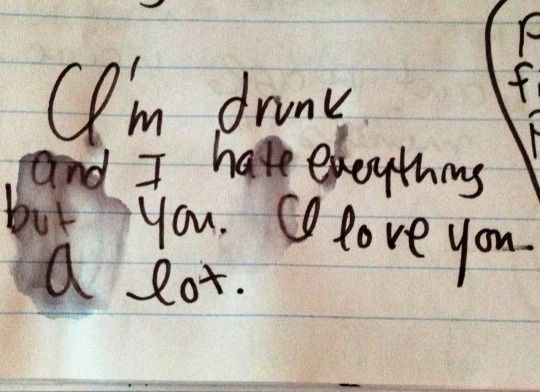 I'm drunk
and I hate everything
but you. I love you
a lot.